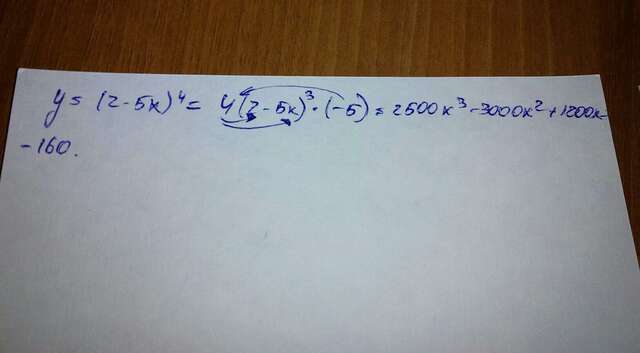 y = (2-5x)⁴ = 4(2-5x)³·(-5) = 2500x³-3000x²+1200x-
-160.